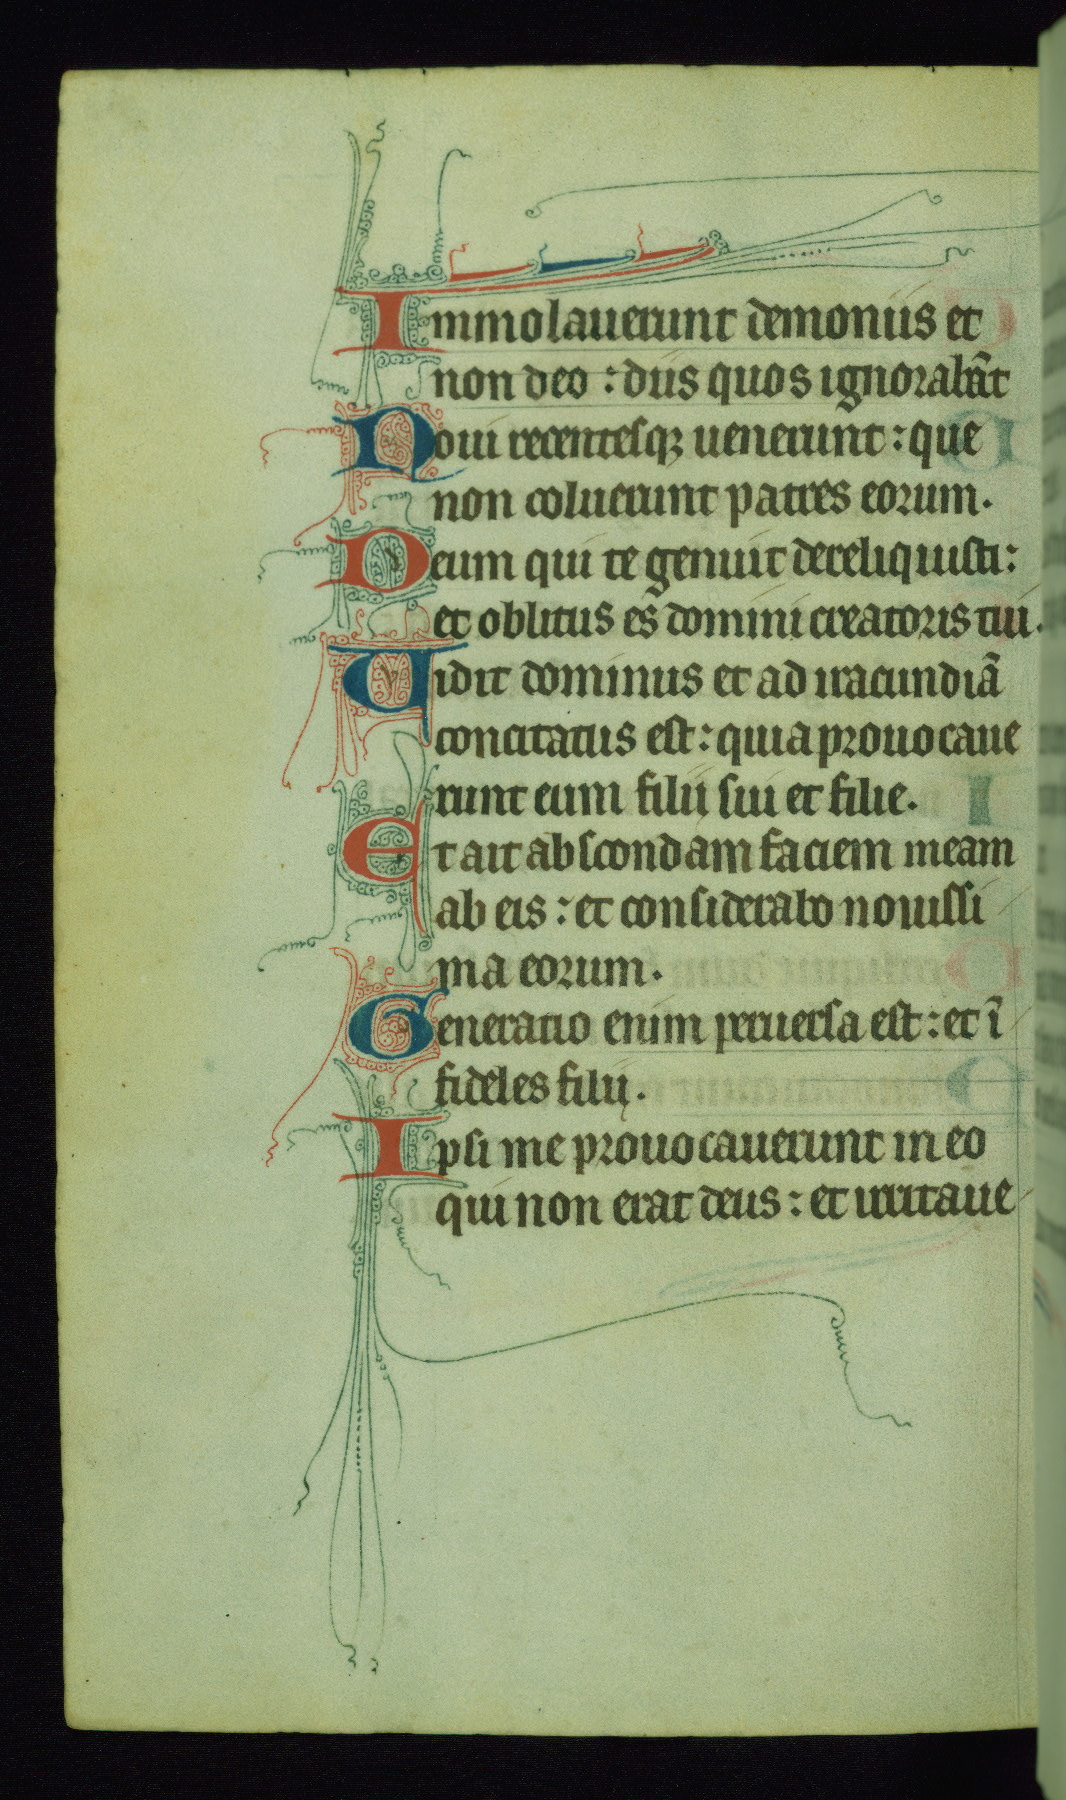 Immolauerunt demoniis et
non deo : diis quos ignorabāt
Noui recentesqꝫ uenerunt : que
non coluerunt patres eorum.
Deum qui te genuit dereliquisti :
et oblitus es domini creatoris tui.
Uidit dominus et ad iracundiā
concitatus est : quia prouocaue
runt eum filii sui et filie.
Et ait abscondam faciem meam
ab eis : et considerabo nouissi
ma eorum.
Generatio enim peruersa est : et ī
fideles filii.
Ipsi me prouocauerunt in eo
qui non erat deus : et irritaue